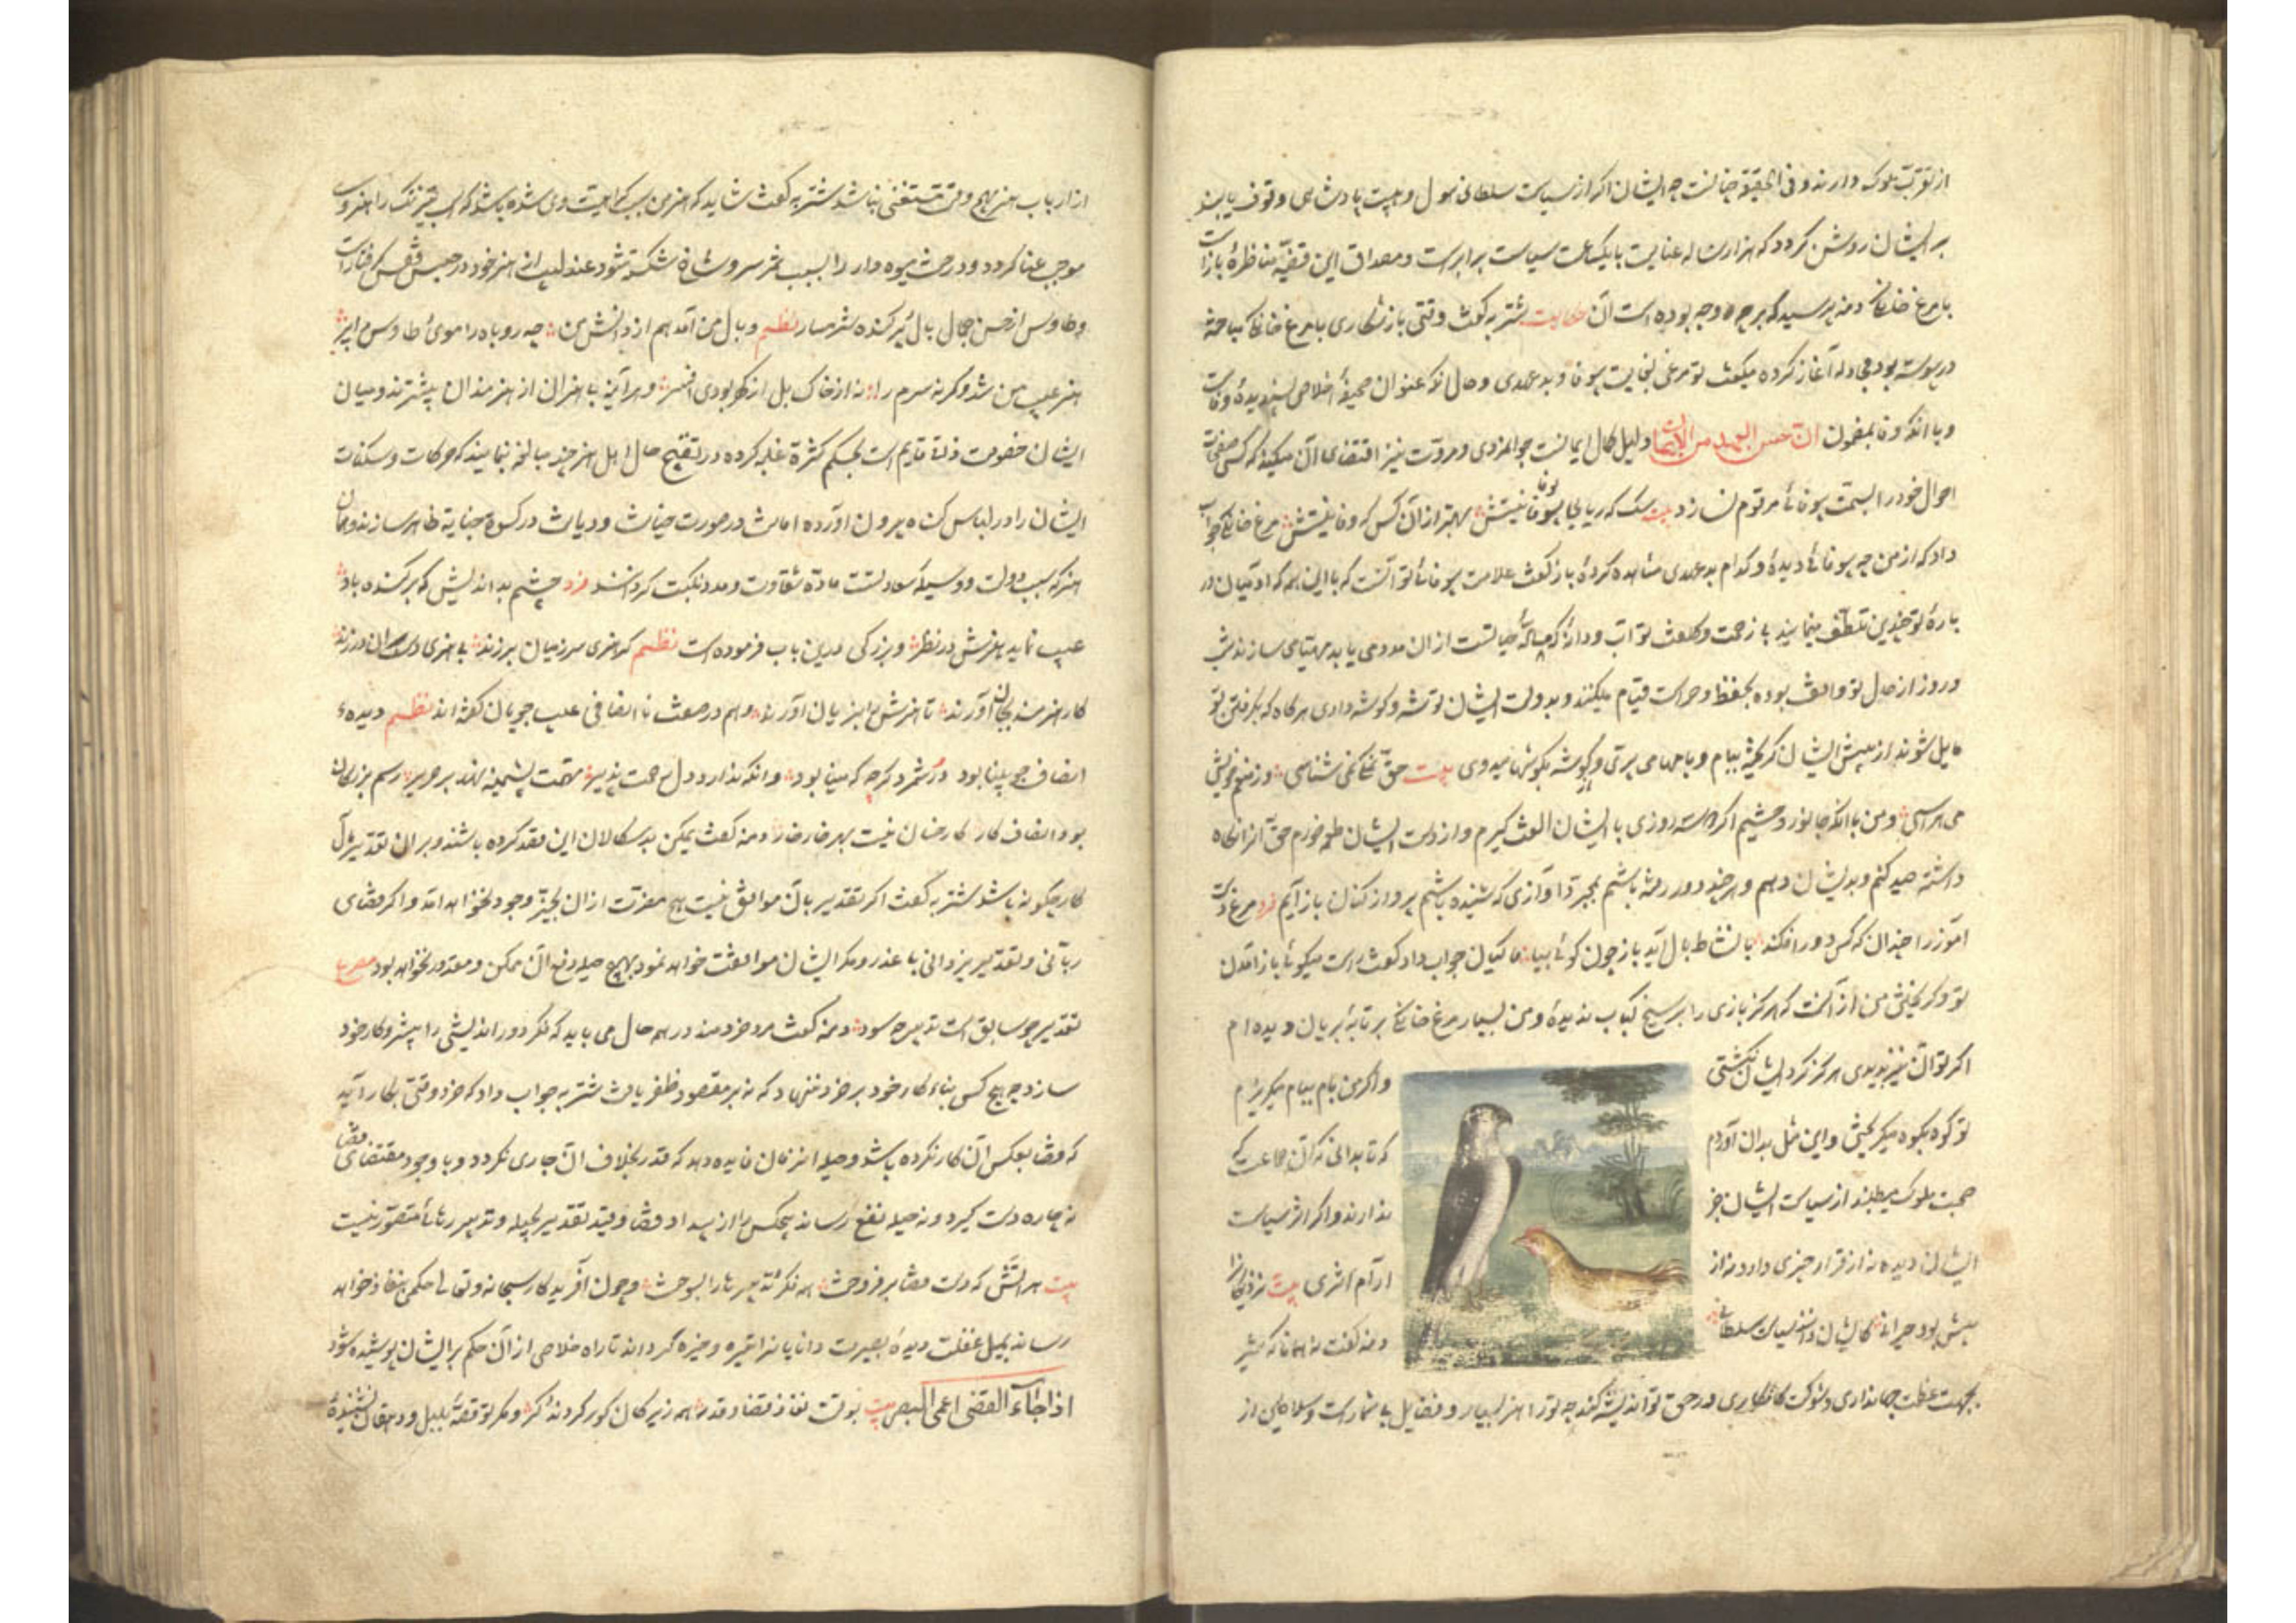 از تقرب ملوک دارند و فی الحقیقة چنانست چه ایشان اگر از سیاست سلطانی و هیبت پادشاهی وقوف یابند
بر ایشان روشن گردد که هزار ساله عنایت با یکساعت سیاست برابرست و مصداق این قضیه مناظرهٔ بازست
با مرغ خانگی دمنه پرسید که بر چه وجه بوده است آن حکایت شتربه گفت وقتی باز شکاری با مرغ خانگی مباحثه
در پیوسته بود و مجادله آغاز کرده میگفت تو مرغی بغایت بیوفا و بدعهدی و حال آنکه عنوان صحیفهٔ اخلاص پسندیده وفاست
و با آنکه وفا بمضمون ان حسن العهد من الایمان دلیل کمال ایمانست جوانمردی و مروت نیز اقتضای آن میکند که کسی صفحات
احوال خود را بسمت بیوفائی مرقوم نسازد بیت سگ که بجا وفا نیستش بهتر از آن کس که وفا نیستش مرغ خانگی جواب
داد که از من چه بیوفائی دیدهٔ و کدام بدعهدی مشاهده کردهٔ باز گفت علامت بیوفائی تو آنست که با این همه که آدمیان در
بارهٔ تو چندین تلطف مینمایند بی زحمت و کلفت تو آب و دانه که مایهٔ حیاتست از آن مدد می یابد مهیا می سازند شب
و روز از حال تو واقف بوده بحفظ و حراست قیام میکنند و بدولت ایشان توشه و گوشه داری هرگاه که بگرفتن تو
مایل شوند از پیش ایشان گریخته ببام و بامها می پری و گوشه بگوشها میدوی بیت حق نمک نمی شناسی وز منعم خویش
می هراسی و من با آنکه جانور وحشیم اگر دو سه روزی با ایشان الفت گیرم و از دست ایشان طعمه خورم حق آنرا نگاه
داشته صید کنم و بدیشان دهم و هر چند دور رفته باشم بمجرد آوازی که شنیده باشم پرواز کنان باز آیم فرد مرغ دست
آموز را چندان که کس دور افکند با نشاط بال آید باز چون گوئی بیا ماکیان جواب داد که گفت راست میگوئی باز آمدن
تو و گریختن من از آنست که هرگز بازی را بر سیخ کباب ندیدهٔ و من بسیار مرغ خانگی بر تابهٔ بریان دیده ام
اگر تو آن نیز بدیدی هرگز گرد ایشان نگشتی و اگر من بام ببام میگریزم
تو کوه بکوه میگریختی و این مثل بدان آوردم که تا بدانی که آن جماعت که
صحبت ملوک میطلبند از سیاست ایشان خبر ندارند و اگر اثر سیاست
ایشان دیده نه از قرار خبری دارد و نه از آرام اثری بیت نزدیکانرا
بیش بود حیرانی کایشان دانند سیاست سلطانی دمنه گفت نه همانا که شیر
بجهت عظمت جهانداری و شوکت کامکاری در حق تو اندیشه کند چه تو را هنر بسیار و فضایل بی شمارست و سلاطین از
از ارباب هنر هیچ وقت مستغنی نباشد شتربه گفت شاید که هنر من سبب کراهیت وی شده باشد که اسب تیز تک را هنر وی
موجب عنا گردد و درخت میوه دار را بسبب ثمر سر و شاخ شکسته شود عندلیب از هنر خود در حبس قفس گرفتارست
و طاوس از حسن جمال بال پر کنده شرمسار نظم وبال من آمد هم از دانش من چو روباه را موی و طاوس را پر
هنر عیب من شد و گرنه سرم را نه از خاک بل از گهر بودی افسر و هر آینه بی هنران از هنرمندان بیشترند و میان
ایشان خصومت ذاتی قدیم است بحکم کثرة غلبه کرده در تقبیح حال اهل هنر چند مبالغه نمایند که حرکات و سکنات
ایشان را در لباس گناه بیرون آورده امانت در صورت خیانت و دیانت در کسوة جنایة ظاهر سازند و همان
هنر که سبب دولت و وسیلهٔ سعادتست مادهٔ شقاوت و مدد نکبت گردانند فرد چشم بد اندیش که برکنده باد
عیب نماید هنرش در نظر و بزرگی درین باب فرموده است نظم گر هنری سر ز میان برزند بی هنری دست بدان درزند
کار هنرمند بجان آورند تا هنرش را بزیان آورند و هم در صفت نا انصافی عیب جویان گفته اند نظم دیدهٔ
انصاف چو بینا بود در شمرد گرچه که مینا بود و آنکه ندارد دل رحمت پذیر تهمت پشمینه نهد بر حریر رسم بزرگان
بود انصاف کار کار خسان نیست بهر خار خار دمنه گفت یمکن بدسگالان این قصد کرده باشند و بر آن تقدیر مآل
کار چگونه باشد شتربه گفت اگر تقدیر با آن موافق نیست هیچ مضرت از آن بحیز وجود نخواهد آمد و اگر قضای
ربانی و تقدیر یزدانی با عذر و مکر ایشان موافقت خواهد نمود بهیچ حیله دفع آن ممکن و مقدور نخواهد بود مصرع
تقدیر چو سابق است تدبیر چه سود دمنه گفت مرد خردمند در همه حال می باید که فکر دوراندیشی را پیشرو کار خود
سازد چه هیچ کس بناء کار خود بر خرد ننهاد که نه بر مقصود ظفر یافت شتربه جواب داد که خرد وقتی بکار آید
که قضا بعکس آن کار نکرده باشد و حیله آن زمان فایده دهد که قدر بخلاف آن جاری نگردد و با وجود مقتضای قضا
نه چاره دست گیرد و نه حیله نفع رساند هیچکس را از بیداد قضا و قید تقدیر بحیله و تدبیر رهائی متصور نیست
بیت هر آتش که دست قضا بر فروخت همه فکر و تدبیرها را بسوخت و چون آفریدگار سبحانه و تعالی حکمی بنفاذ خواهد
رساند بمیل غفلت دیدهٔ بصیرت دانایانرا تیره و خیره گرداند تا راه خلاص از آن حکم بر ایشان پوشیده شود
اذا جاء القضی اعمی البصر بیت بوقت نفاذ قضا و قدر همه زیرکان کور گردند و کر و مگر تو قصهٔ بلبل و دهقان نشنیدهٔ